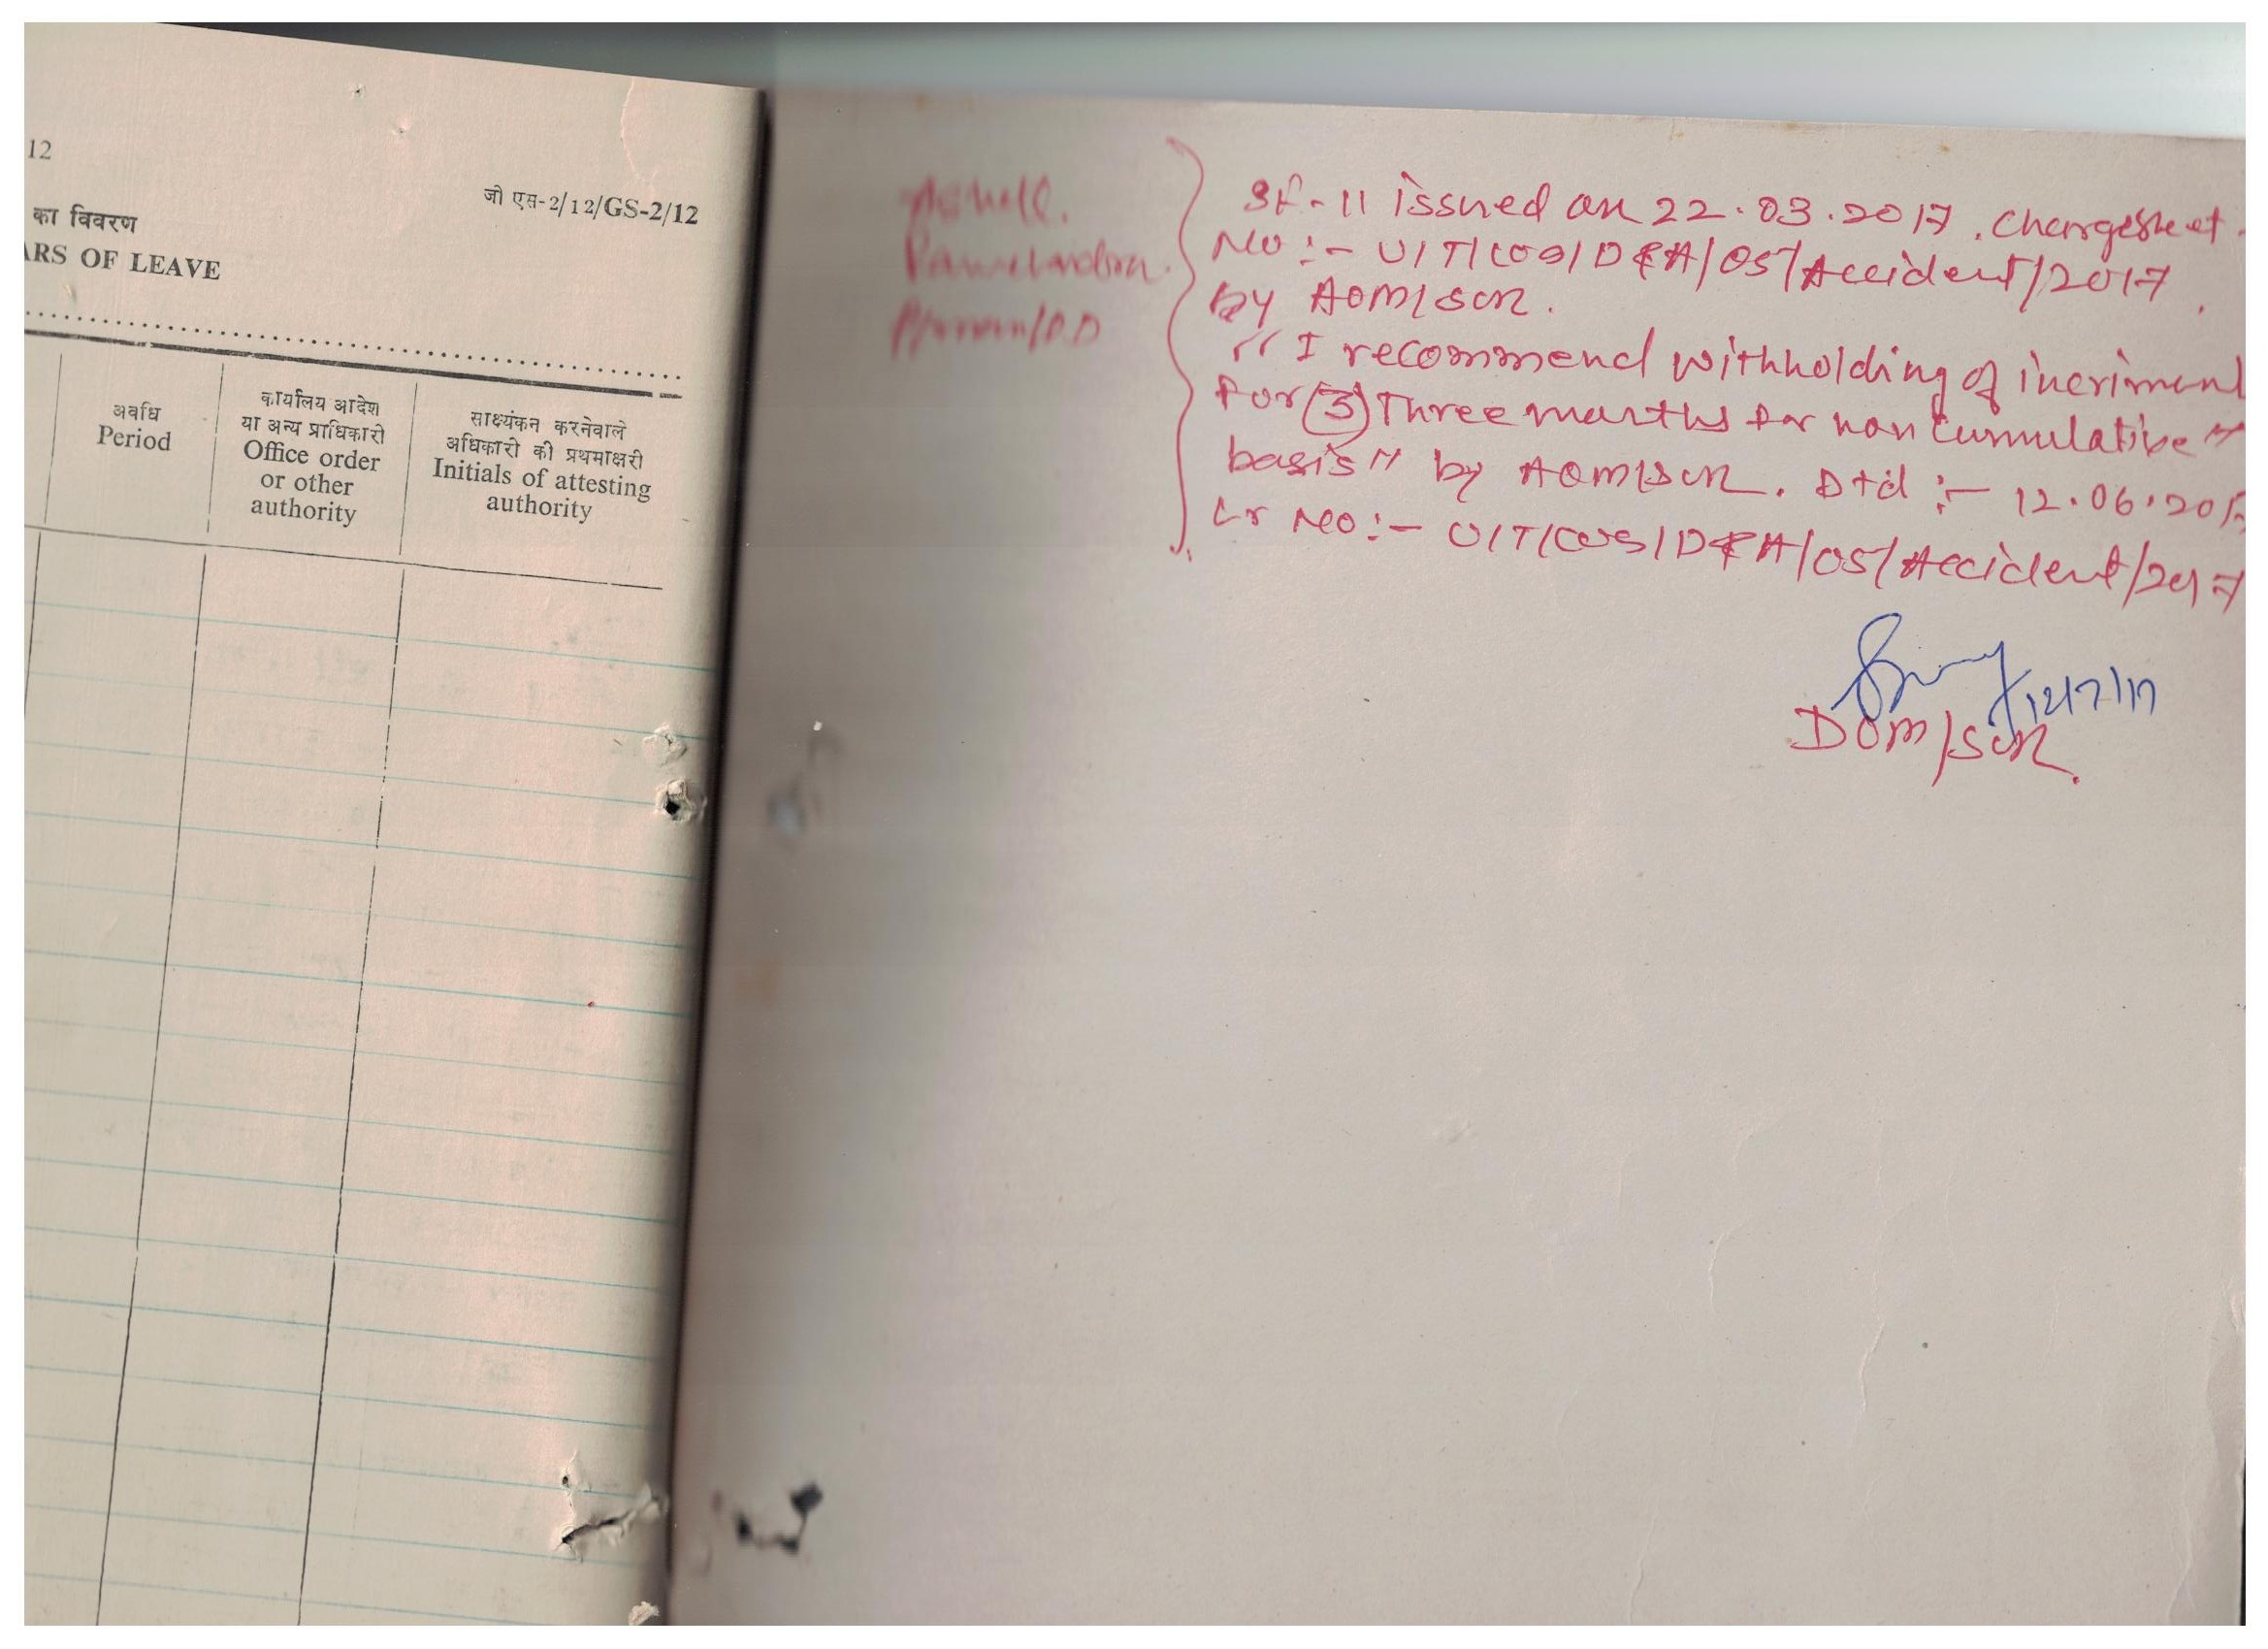 12
जी एस-2/12/GS-2/12
का विवरण
ARS OF LEAVE
अवधि
Period
कार्यालय आदेश
या अन्य प्राधिकारी
Office order
or other
authority
साक्ष्यंकन करनेवाले
अधिकारी की प्रथमाक्षरी
Initials of attesting
authority
Ashok.
Ramchandra.
SF-11 issued on 22.03.2017. Chargesheet
No :- U/T/COG/D&A/05/Accident/2017
by AOM/SUR.
"I recommend withholding of incriment
For (3) Three months for non cumulative
basis" by AOM/SUR. Dtd :- 12.06.201
Lr No :- U/T/COG/D&A/05/Accident/2017
12/7/17
DOM/SUR.